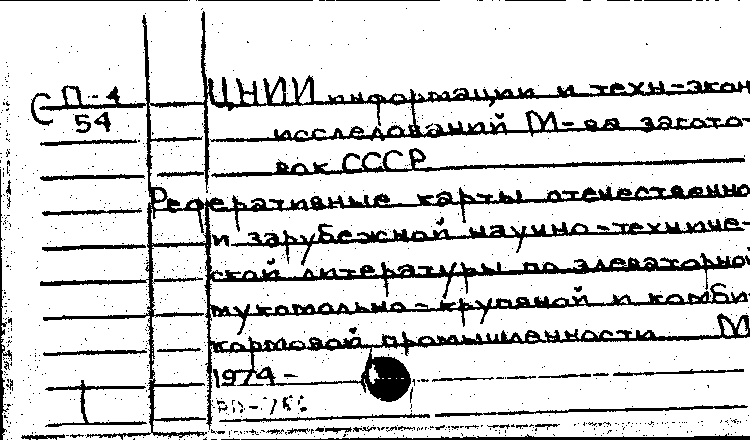 С П-4
54
ЦНИИ информации и техн-экон
исследований М-ва загото-
вок СССР
Реферативные карты отечественно
и зарубежной научно-техниче-
ской литературы по элеваторной
мукомольно-крупяной и комби-
кормовой промышленности М
1974-